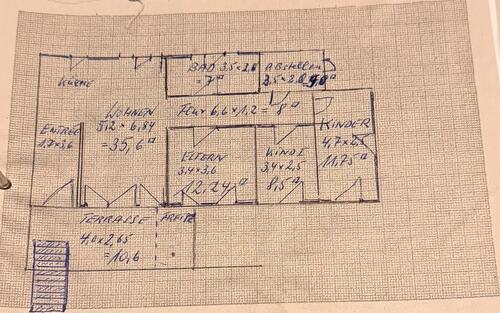 KÜCHE
BAD 3,5 x 2,0
= 7 ▫
ABstellen
2,5 x 2,0
WOHNEN
5,2 x 6,84
= 35,6 ▫
Flur 6,6 x 1,2 = 8 ▫
ENTREE
1,7 x 3,6
ELTERN
3,4 x 3,6
12,24 ▫
KINDE
3,4 x 2,5
8,5 ▫
KINDER
4,7 x 2,5
11,75 ▫
TERRASSE
4,0 x 2,65
= 10,6